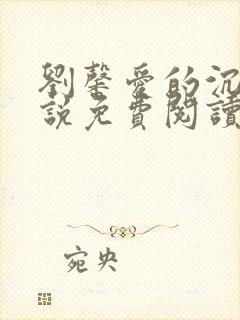 劉馨愛的沉
說免費閱讀
宛央